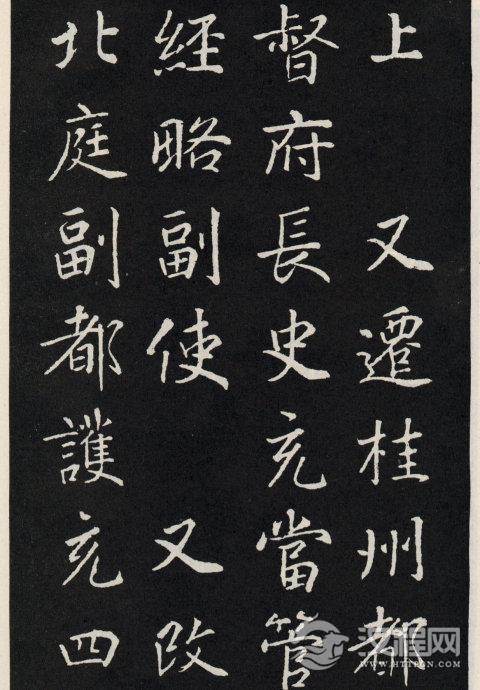 上 又遷桂州都
督府長史充當管
經略副使 又改
北庭副都護充四
汉程网
WWW.HTTPCN.COM